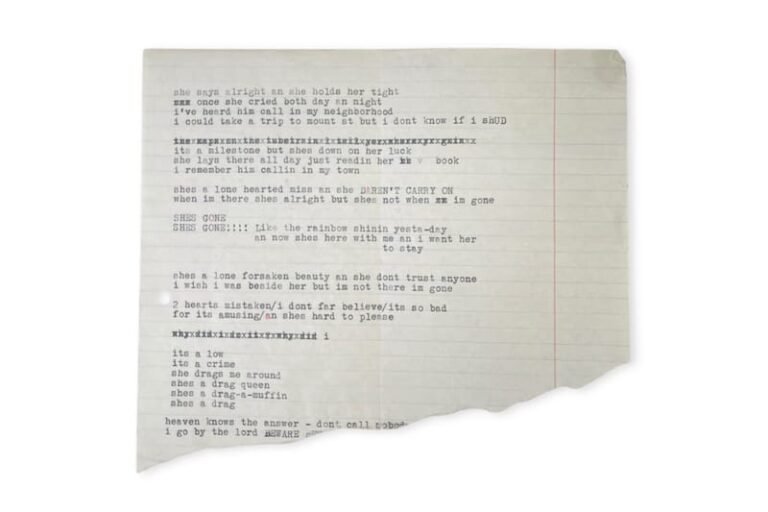 she says alright an she holds her tight
once she cried both day an night
i've heard him call in my neighborhood
i could take a trip to mount st but i dont know if i shUD
its a milestone but shes down on her luck
she lays there all day just readin her book
i remember him callin in my town
shes a lone hearted miss an she DAREN'T CARRY ON
when im there shes alright but shes not when im gone
SHES GONE
SHES GONE!!!! Like the rainbow shinin yesta-day
an now shes here with me an i want her
to stay
shes a lone forsaken beauty an she dont trust anyone
i wish i was beside her but im not there im gone
2 hearts mistaken/i dont far believe/its so bad
for its amusing/an shes hard to please
i
its a low
its a crime
she drags me around
shes a drag queen
shes a drag-a-muffin
shes a drag
heaven knows the answer - dont call
i go by the lord BEWARE